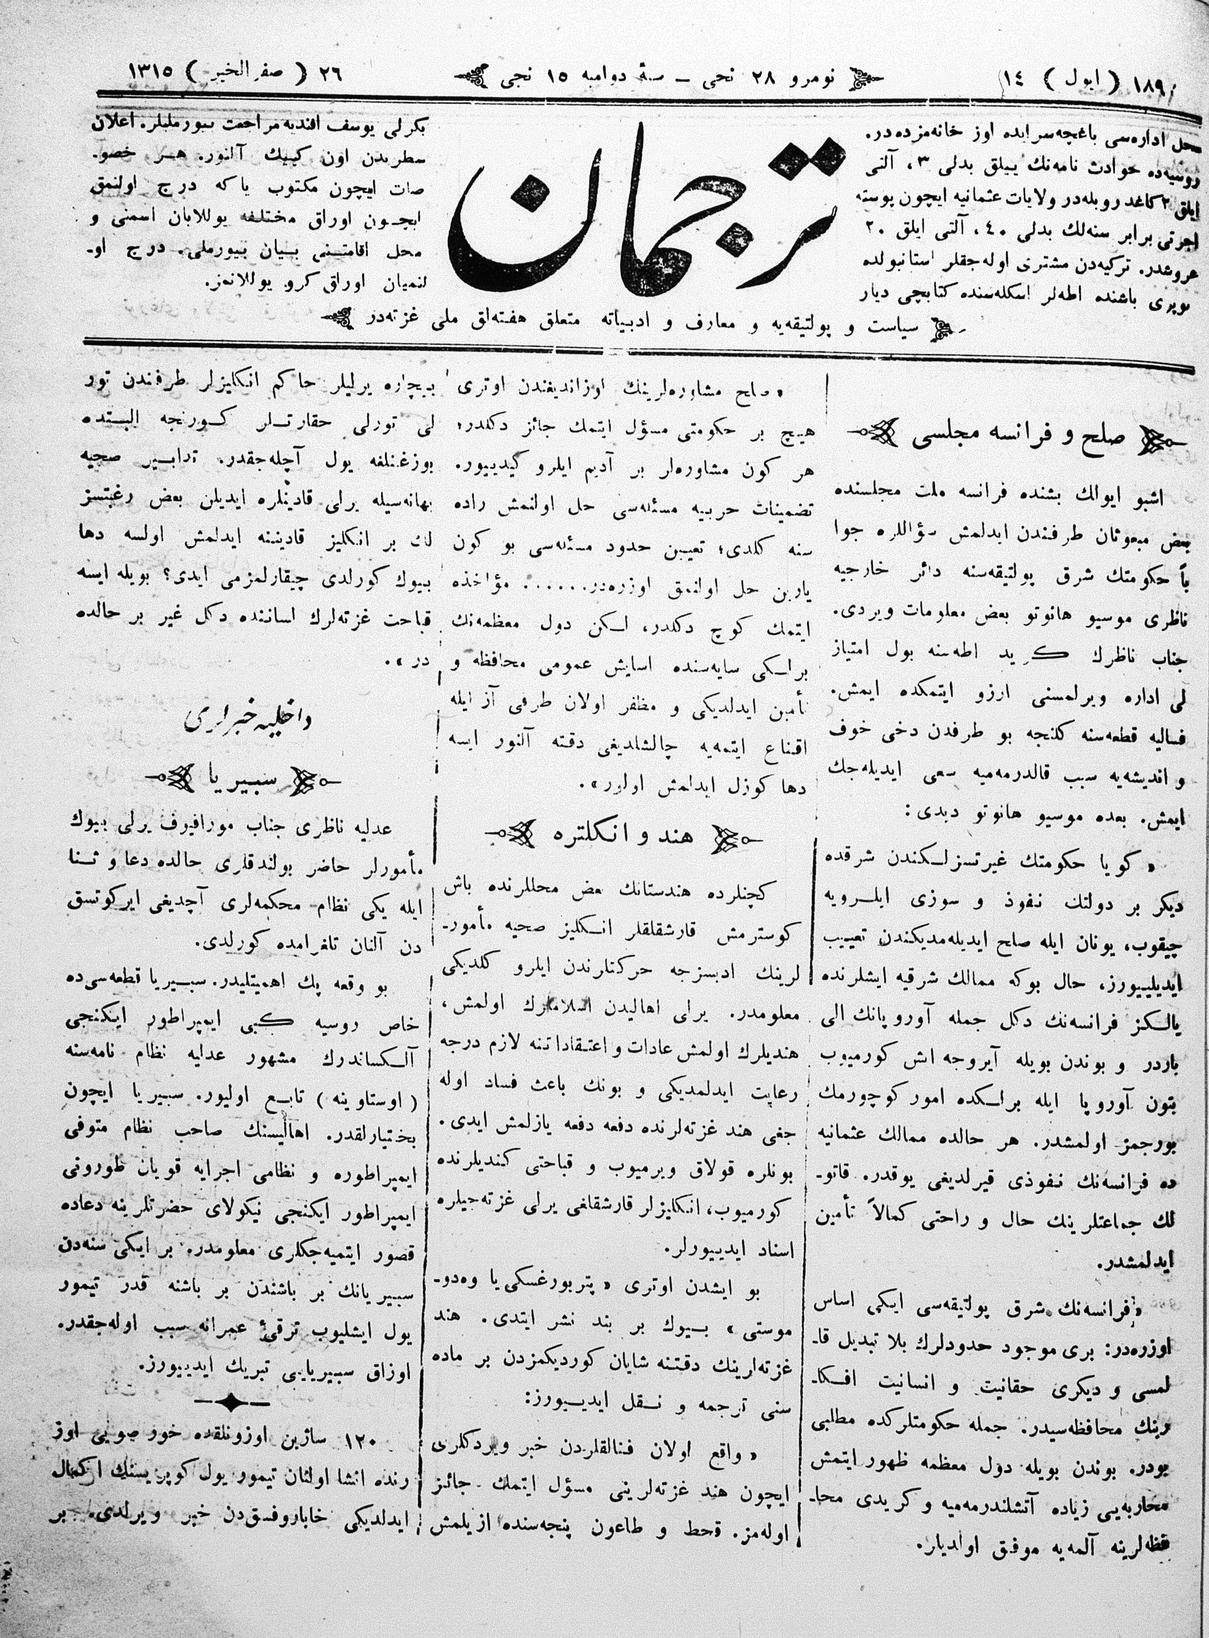 ١٨٩ ( ايول ) ١٤
نومرو ٢٨ نجى – سنۀ دواميه ١٥ نجى
٢٦ ( صفر الخير ) ١٣١٥
محل اداره‌سى باغچه‌سرايده اوز خانه‌مزده‌در.
روسيه‌ده حوادث نامه‌نك ييلق بدلى ٣، آلتى
ايلق ٢ كاغد روبله‌در ولايات عثمانيه ايچون پوسته
اجرتى برابر سنه‌لك بدلى ٤٠، آلتى ايلق ٢٠
غروشدر. تركيه‌دن مشترى اوله‌جقلر استانبولده
كوپرى باشنده اطه‌لر اسكله‌سنده كتابچى ديار
ترجمان
بكرلى يوسف افنديه مراجعت بيورمليلر. اعلان
سطريدن اون كپيك آلنور. هر خصو-
صات ايچون مكتوب ياكه درج اولنمق
ايچون اوراق مختلفه يوللايان اسمنى و
محل اقامتنى بيان بيورملى. درج او-
لنميان اوراق كرو يوللانمز.
سياست و پولتيقه‌يه و معارف و ادبياته متعلق هفته‌لق ملى غزته‌در
صلح و فرانسه مجلسى
اشبو ايولك بشنده فرانسه ملت مجلسنده
بعض مبعوثان طرفندن ايدلمش سؤاللره جوا
باً حكومتك شرق پولتيقه‌سنه دائر خارجيه
ناظرى موسيو هانوتو بعض معلومات ويردى.
جناب ناظرك كريد اطه‌سنه بول امتياز
لى اداره ويرلمسنى ارزو ايتمكده ايمش.
فساليه قطعه‌سنه كلنجه بو طرفدن دخى خوف
و انديشه‌يه سبب قالدرمه‌ميه سعى ايديله‌جك
ايمش. بعده موسيو هانوتو ديدى:
« كويا حكومتك غيرتسزلكندن شرقده
ديكر بر دولتك نفوذ و سوزى ايلرويه
چيقوب، يونان ايله صلح ايديله‌مديكندن تعييب
ايديلييورز، حال بوكه ممالك شرقيه ايشلرنده
يالكز فرانسه‌نك دكل جمله آوروپانك الى
باردر و بوندن بويله آيروجه اش كورميوب
بتون آوروپا ايله برلكده امور كوچورمك
بورجمز اولمشدر. هر حالده ممالك عثمانيه
ده فرانسه‌نك نفوذى قيرلديغى يوقدر. قاتو-
لك جماعتلرينك حال و راحتى كمالاً تأمين
ايدلمشدر.
«فرانسه‌نك شرق پولتيقه‌سى ايكى اساس
اوزره‌در: برى موجود حدودلرك بلا تبديل قا-
لمسى و ديكرى حقانيت و انسانيت افكا-
رينك محافظه‌سيدر. جمله حكومتلركده مطلبى
بودر. بوندن بويله دول معظمه ظهور ايتمش
محاربه‌يى زياده آتشلندرمه‌ميه و كريدى محا-
فظه‌لرينه آلمه‌يه موفق اولديلر.
« صلح مشاوره‌لرينك اوزانديغندن اوترى
هيچ بر حكومتى مسؤل ايتمك جائز دكلدر؛
هر كون مشاوره‌لر بر آديم ايلرو كيدييور.
تضمينات حربيه مسئله‌سى حل اولنمش راده
سنه كلدى؛ تعيين حدود مسئله‌سى بو كون
يارين حل اولنمق اوزره‌در...... مؤاخذه
ايتمك كوچ دكلدر، لكن دول معظمه‌نك
برلكى سايه‌سنده اسايش عمومى محافظه و
تأمين ايدلديكى و مظفر اولان طرفى آز ايله
اقناع ايتمه‌يه چالشلديغى دقته آلنور ايسه
دها كوزل ايدلمش اولور».
هند و انكلتره
كچنلرده هندستانك بعض محللرنده باش
كوسترمش قارشقلقلر انكليز صحيه مأمور-
لرينك ادبسزجه حركتلرندن ايلرو كلديكى
معلومدر. يرلى اهاليدن اسلاملرك اولمش،
هنديلرك اولمش عادات و اعتقاداتنه لازم درجه
رعايت ايدلمديكى و بونك باعث فساد اوله
جغى هند غزته‌لرنده دفعه دفعه يازلمش ايدى.
بونلره قولاق ويرميوب و قباحتى كنديلرنده
كورميوب، انكليزلر قارشقلغى يرلى غزته‌جيلره
اسناد ايدييورلر.
بو ايشدن اوترى « پتربورغسكى يا وه‌دو-
موستى » بيوك بر بند نشر ايتدى. هند
غزته‌لرينك دقتنه شايان كورديكمزدن بر ماده
سنى ترجمه و نقل ايدييورز:
« واقع اولان فنالقلردن خبر ويردكلرى
ايچون هند غزته‌لرينى مسؤل ايتمك جائز
اوله‌مز. قحط و طاعون پنجه‌سنده ازيلمش
بيچاره يرليلر حاكم انكليزلر طرفندن تور
لى تورلى حقارتلر كورنجه البتده
بوزغنلغه يول آچله‌جقدر. تدابير صحيه
بهانه‌سيله يرلى قادينلره ايديلن بعض رغبتسز
لك بر انكليز قاديننه ايدلمش اولسه دها
بيوك كورلدى چيقارلمزمى ايدى؟ بويله ايسه
قباحت غزته‌لرك اساننده دكل غير بر حالده
در ».
داخليه خبرلرى
سبيريا
عدليه ناظرى جناب مورافيوف يرلى بيوك
مأمورلر حاضر بولندقلرى حالده دعا و ثنا
ايله يكى نظام محكمه‌لرى آچديغى ايركوتسق
دن آلنان تلغرامده كورلدى.
بو وقعه پك اهميتليدر. سبيريا قطعه‌سى ده
خاص روسيه كبى ايمپراطور ايكنجى
آلكساندرك مشهور عدليه نظام نامه‌سنه
( اوستاوينه ) تابع اوليور. سبيريا ايچون
بختيارلقدر. اهاليسنك صاحب نظام متوفى
ايمپراطوره و نظامى اجرايه قويان
ايمپراطور ايكنجى نيكولاى حضرتلرينه دعاده
قصور ايتميه‌جكلرى معلومدر. بر ايكى سنه‌دن
سبيريانك بر باشندن بر باشنه قدر تيمور
يول ايشليوب ترقئ عمرانه سبب اوله‌جقدر.
اوزاق سبيريايى تبريك ايدييورز.
١٢٠ ساژين اوزونلقده خور صويى اوز
رنده انشا اولنان تيمور يول كوپريسنك اكمال
ايدلديكى خاباروفسق‌دن خبر ويرلدى. بر